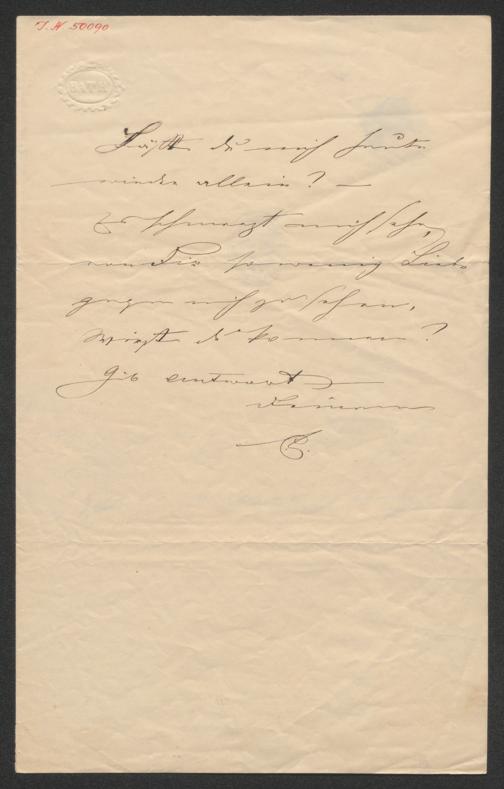 I. N 50090
BATH
Läßt du mich heute
wieder allein? —
Es schmerzt mich sehr,
von Dir so wenig Liebe
gegen mich zu sehen,
wirst du kommen?
Gib Antwort
Deinem
C.